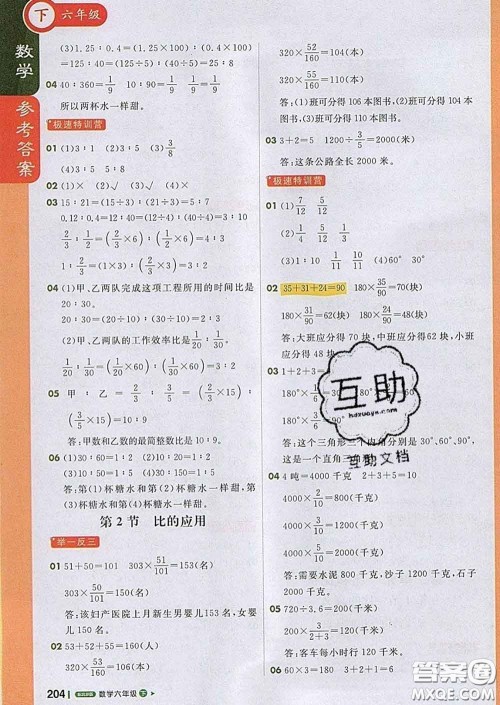 下 六年级
数学
参考答案
(3)1.25∶0.4=(1.25×100)∶(0.4×100)
=125∶40=(125÷5)∶(40÷5)=25∶8
04 40∶360=40/360=1/9 10/90=1/9 1/9=1/9
所以两杯水一样甜。
极速特训营
01 (1)3∶1 (2)5∶3 (3)3/8
02 (1)× (2)√ (3)√ (4)×
03 15∶21=(15÷3)∶(21÷3)=5∶7
0.12∶0.4=12∶40=(12÷4)∶(40÷4)=3∶10
2/3∶1/2=(2/3×6)∶(1/2×6)=4∶3
04 (1)甲、乙两队完成这项工程所用的时间比是
20∶30。
(2)甲、乙两队的工作效率比是1/20∶1/30。
1/20∶1/30=(1/20×60)∶(1/30×60)=3∶2
05 甲∶乙=2/3∶
(3/5×15)=10∶9
答:甲数和乙数的最简整数比是10∶9。
06 (1)第1杯糖水和第4杯糖水一样甜,第2杯糖
水和第3杯糖水一样甜。
答:第1杯糖水和第4杯糖水一样甜,第2杯
糖水和第3杯糖水一样甜。
第2节 比的应用
举一反三
01 51+50=101 303×51/101=153(名)
303×50/101=150(名)
答:该妇产医院上月新生男婴儿153名,女婴
儿150名。
02 53+52+55=160(人)
320×53/160=106(本)
204 数学六年级 下
320×52/160=104(本)
320×55/160=110(本)
答:(1)班可分得106本图书,(2)班可分得104本
图书,(3)班可分得110本图书。
03 3+2=5 1200÷3/5=2000(米)
答:这条公路全长2000米。
极速特训营
01 (1)7/12 5/12
(2)4/7
(3)1∶10 1/11 10/11 (4)60° 30°
02 35+31+24=90 180×35/90=70(块)
180×31/90=62(块) 180×24/90=48(块)
答:大班应分得70块,中班应分得62块,小班
应分得48块。
03 1+2+3=
180°×
180°×3/6=90°
答:这个三角形三个内角分别是30°,60°,90°,
这是一个直角三
04 4吨=4000千克
4000×2/10=800(千克)
4000×3/10=1200(千克)
4000×5/10=2000(千克)
答:需要水泥800千克,沙子1200千克,石子
2000千克。
05 720÷3.6=200(千米)
200×3/(2+3)=120(千米)
答:客车每小时行120千米。
06 3+4+5=12 180÷3=60(厘米)
互助
互助文档
答案圈
MXQE.COM